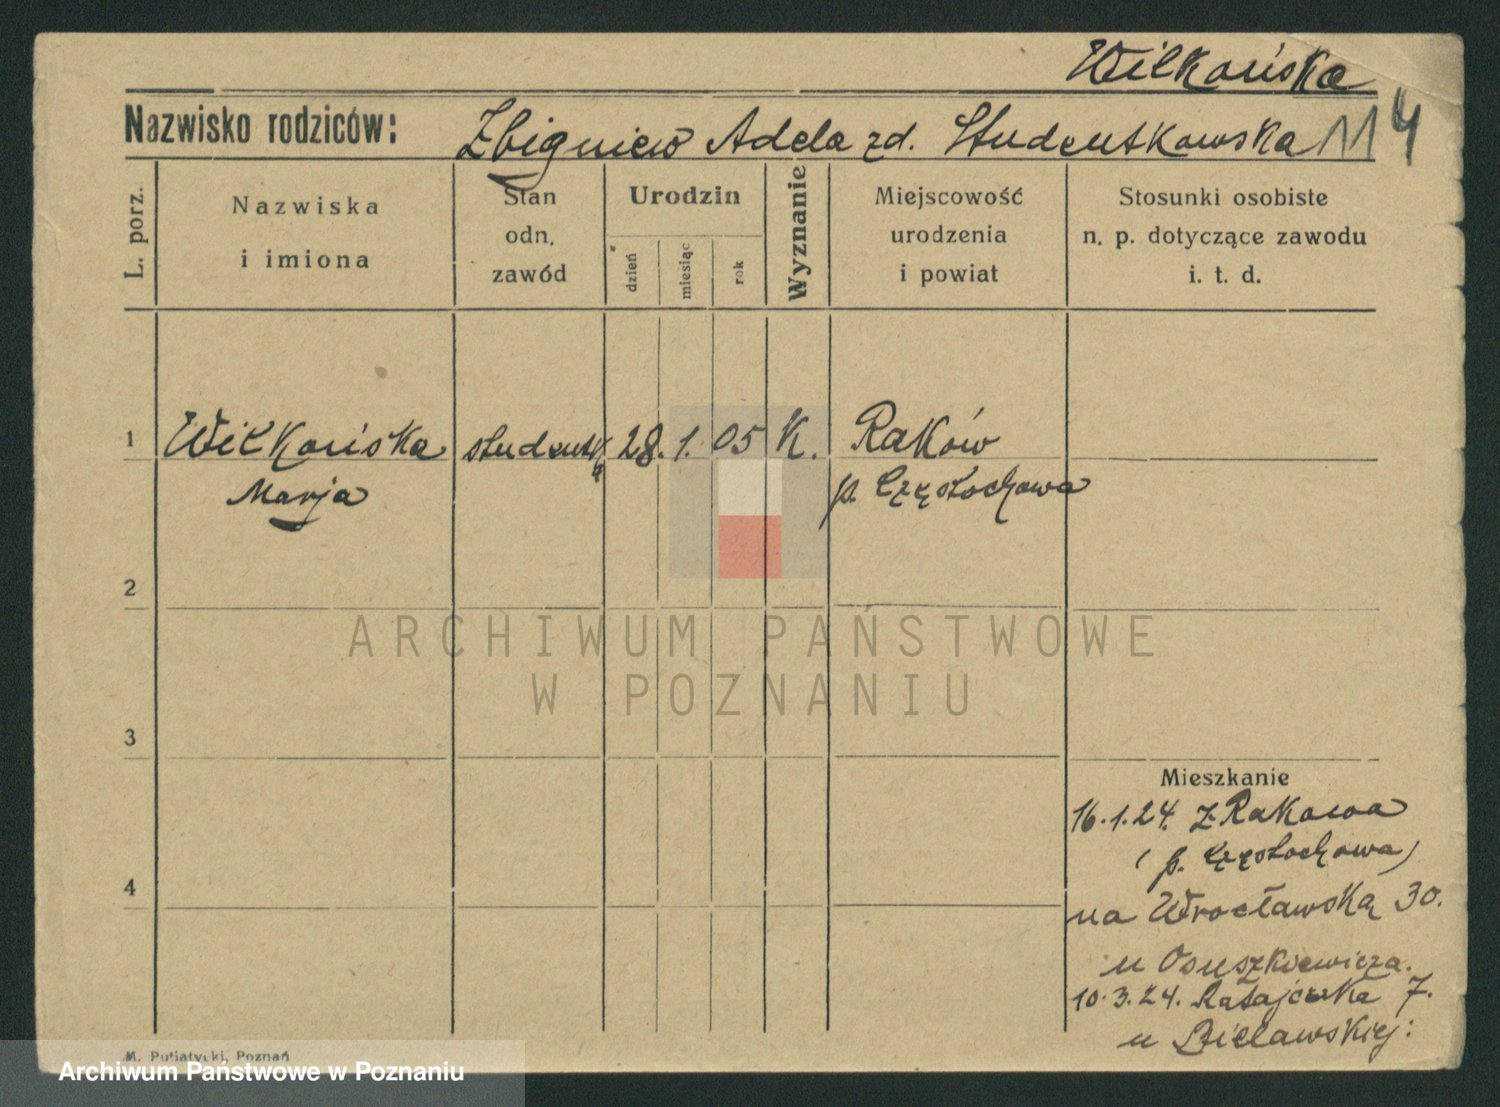 Wilkońska
Nazwisko rodziców: Zbigniew Adela zd. Studentkowska 114
L. porz.
Nazwiska
i imiona
Stan
odn.
zawód
Urodzin
dzień
miesiąc
rok
Wyznanie
Miejscowość
urodzenia
i powiat
Stosunki osobiste
n. p. dotyczące zawodu
i. t. d.
1 Wilkońska studentka 28. 1. 05 K. Raków
Marja p. Częstochowa
2
ARCHIWUM PAŃSTWOWE
W POZNANIU
3
Mieszkanie
16.1.24. z Rakowa
(p. Częstochowa)
4
na Wrocławską 30.
u Osuszkiewicza.
10.3.24. Ratajczaka 7.
u Bielawskiej:
M. Putiatycki, Poznań
Archiwum Państwowe w Poznaniu